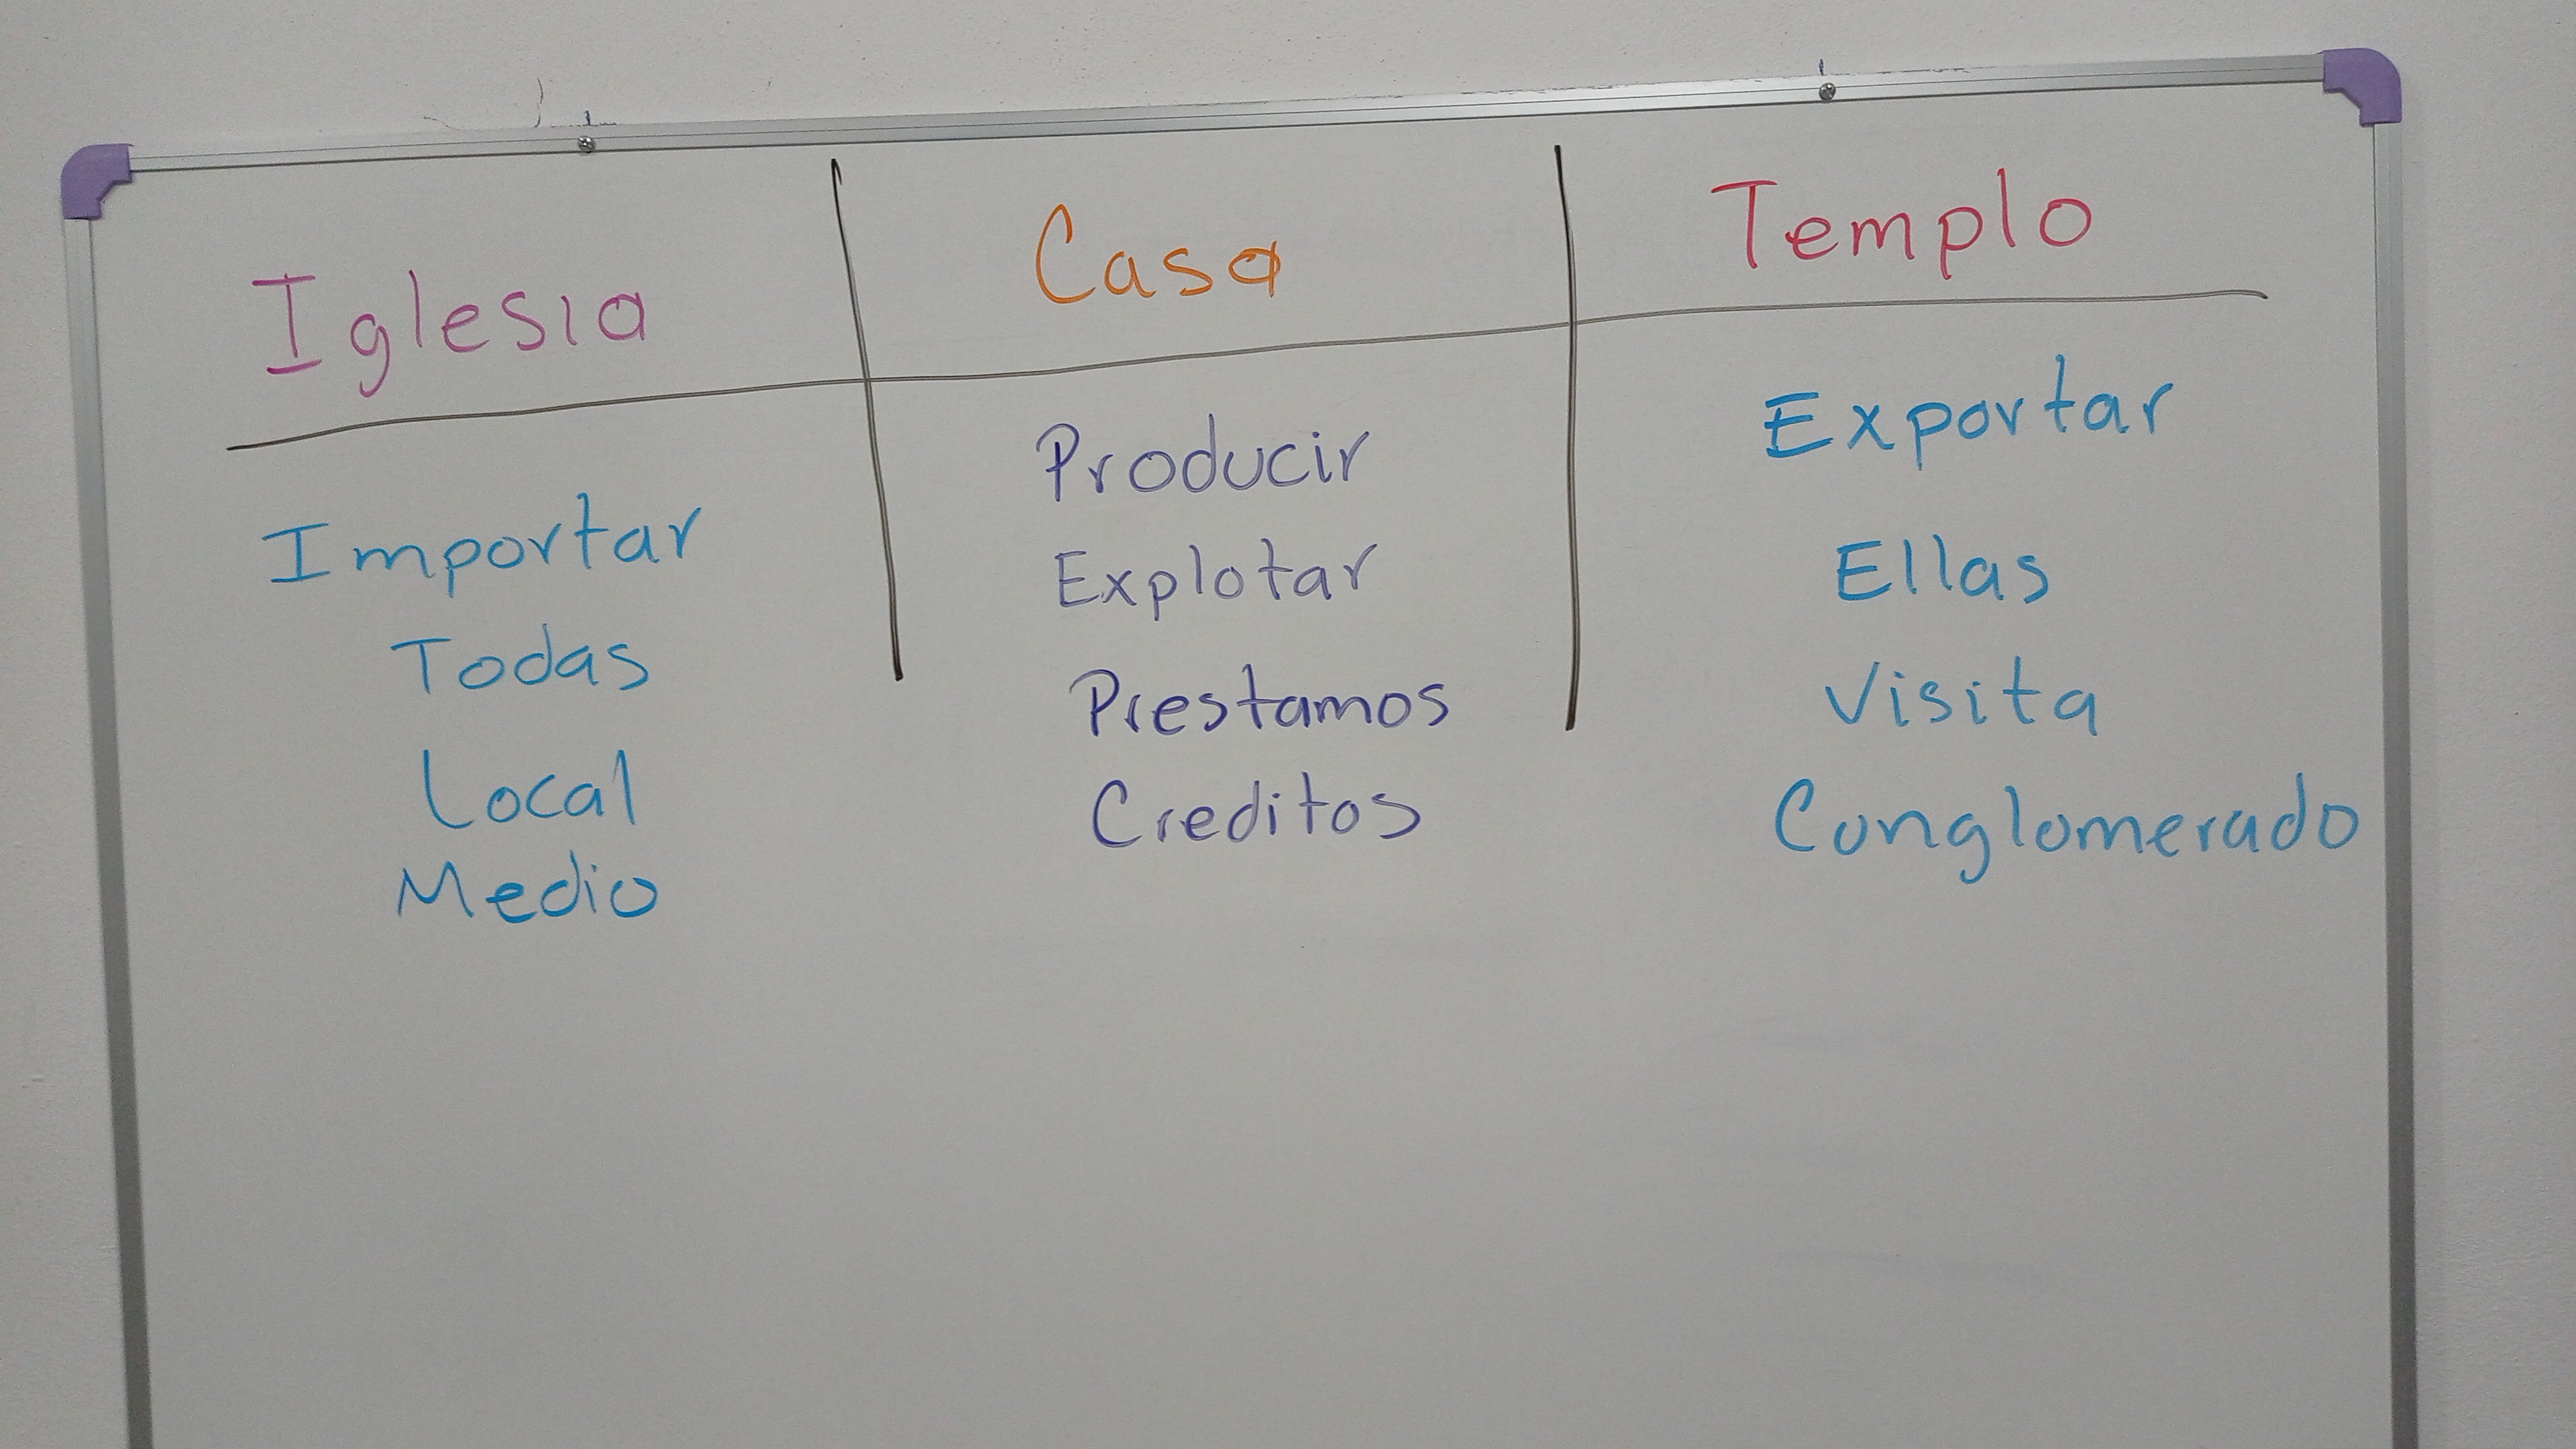 Iglesia Casa Templo
Importar Producir Exportar
Todas Explotar Ellas
Local Prestamos Visita
Medio Creditos Conglomerado